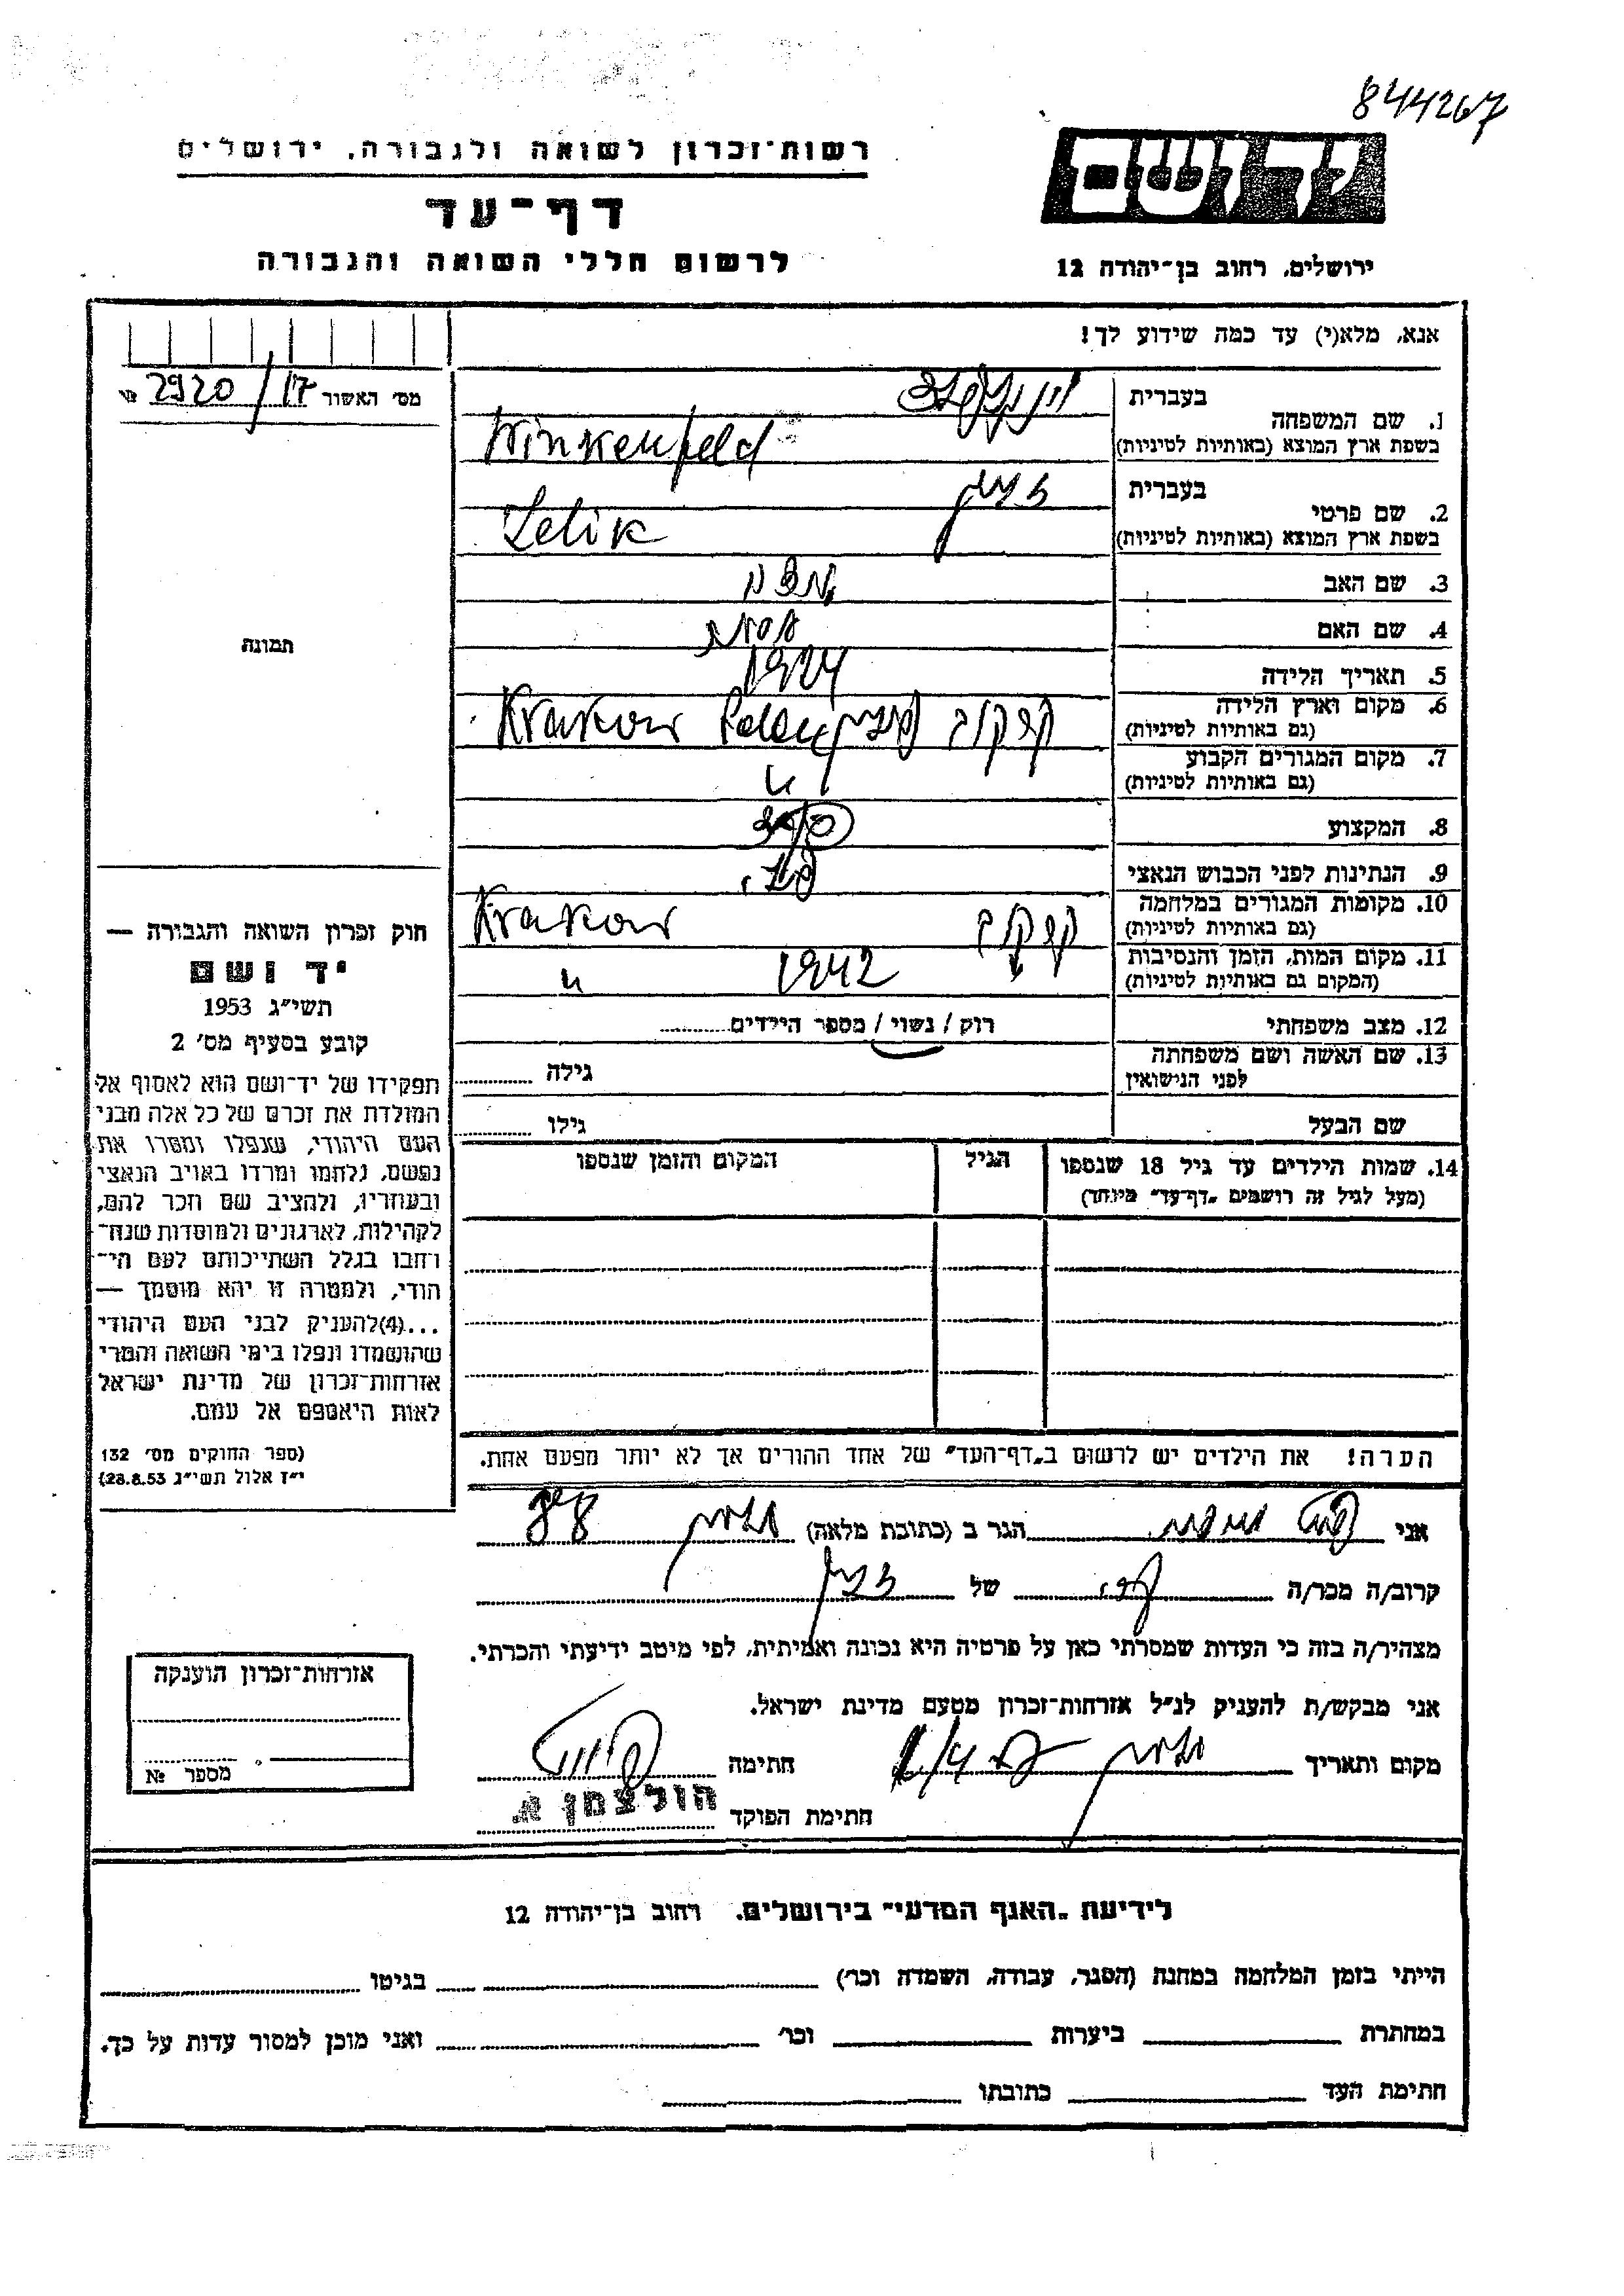 844267
רשות־זכרון לשואה ולגבורה, ירושלים
דף־עד
לרשום חללי השואה והגבורה
יד ושם
ירושלים, רחוב בן־יהודה 12
אנא, מלא(י) עד כמה שידוע לך!
מס' האשור 17/2920 №
תמונה
בעברית וינקנפלד
1. שם המשפחה
בשפת ארץ המוצא (באותיות לטיניות) Winkenfeld
בעברית
2. שם פרטי
בשפת ארץ המוצא (באותיות לטיניות) Zelik
3. שם האב
4. שם האם
5. תאריך הלידה 1924
6. מקום וארץ הלידה קרקוב פולין Krakow
(גם באותיות לטיניות)
7. מקום המגורים הקבוע "
(גם באותיות לטיניות)
8. המקצוע
9. הנתינות לפני הכבוש הנאצי פול.
10. מקומות המגורים במלחמה קרקוב Krakow
(גם באותיות לטיניות)
11. מקום המות, הזמן והנסיבות 1942 "
(המקום גם באותיות לטיניות)
12. מצב משפחתי רוק / נשוי / מספר הילדים
13. שם האשה ושם משפחתה
לפני הנישואין גילה
שם הבעל גילו
14. שמות הילדים עד גיל 18 שנספו הגיל המקום והזמן שנספו
(מעל לגיל זה רושמים „דף־עד" מיוחד)
הערה! את הילדים יש לרשום ב„דף־העד" של אחד ההורים אך לא יותר מפעם אחת.
חוק זכרון השואה והגבורה —
יד ושם
תשי"ג 1953
קובע בסעיף מס' 2
תפקידו של יד־ושם הוא לאסוף אל
המולדת את זכרם של כל אלה מבני
העם היהודי, שנפלו ומסרו את
נפשם, נלחמו ומרדו באויב הנאצי
ובעוזריו, ולהציב שם וזכר להם,
לקהילות, לארגונים ולמוסדות שנח־
רבו בגלל השתייכותם לעם הי־
הודי, ולמטרה זו יהא מוסמך —
...(4)להעניק לבני העם היהודי
שהושמדו ונפלו בימי השואה והמרי
אזרחות־זכרון של מדינת ישראל
לאות היאספם אל עמם.
(ספר החוקים מס' 132
י"ז אלול תשי"ג 28.8.53)
אני הגר ב (כתובת מלאה)
קרוב/ה מכר/ה של
מצהיר/ה בזה כי העדות שמסרתי כאן על פרטיה היא נכונה ואמיתית, לפי מיטב ידיעתי והכרתי.
אני מבקש/ת להעניק לנ"ל אזרחות־זכרון מטעם מדינת ישראל.
מקום ותאריך חתימה
חתימת הפוקד הולצמן א.
אזרחות־זכרון הוענקה
מספר №
לידיעת „האגף המדעי" בירושלים, רחוב בן־יהודה 12
הייתי בזמן המלחמה במחנה (הסגר, עבודה, השמדה וכר') בגיטו
במחתרת ביערות וכר' ואני מוכן למסור עדות על כך.
חתימת העד כתובתו